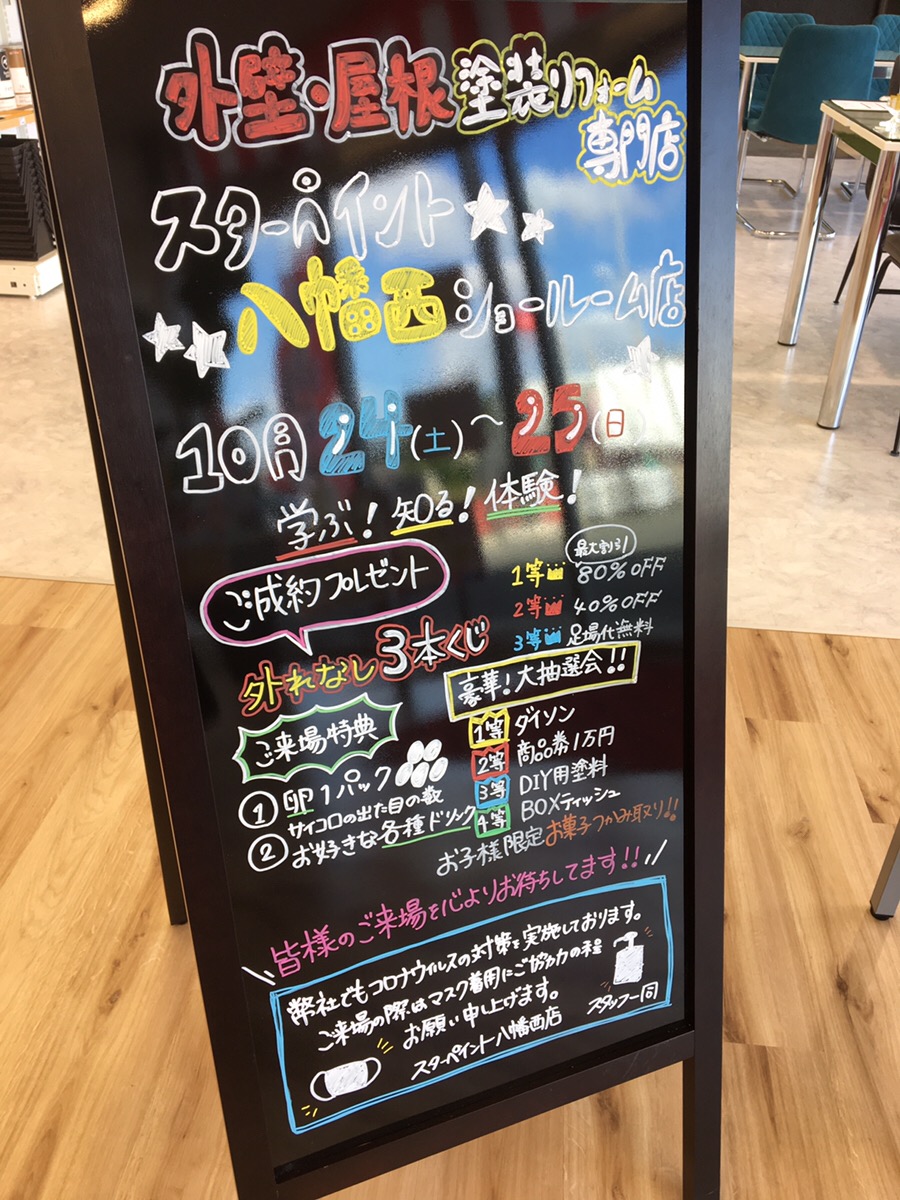 外壁・屋根塗装リフォーム
専門店
スターペイント
八幡西ショールーム店
10月24(土)〜25(日)
学ぶ!知る!体験!
ご成約プレゼント
外れなし3本くじ
最大割引
1等 80%OFF
2等 40%OFF
3等 足場代無料
豪華!大抽選会!!
1等 ダイソン
2等 商品券1万円
3等 DIY用塗料
4等 BOXティッシュ
ご来場特典
① 卵1パック
サイコロの出た目の数
② お好きな各種ドリンク
お子様限定お菓子つかみ取り!!
皆様のご来場を心よりお待ちしてます!!
弊社でもコロナウイルスの対策を実施しております。
ご来場の際はマスク着用にご協力の程
お願い申し上げます。
スターペイント八幡西店 スタッフ一同